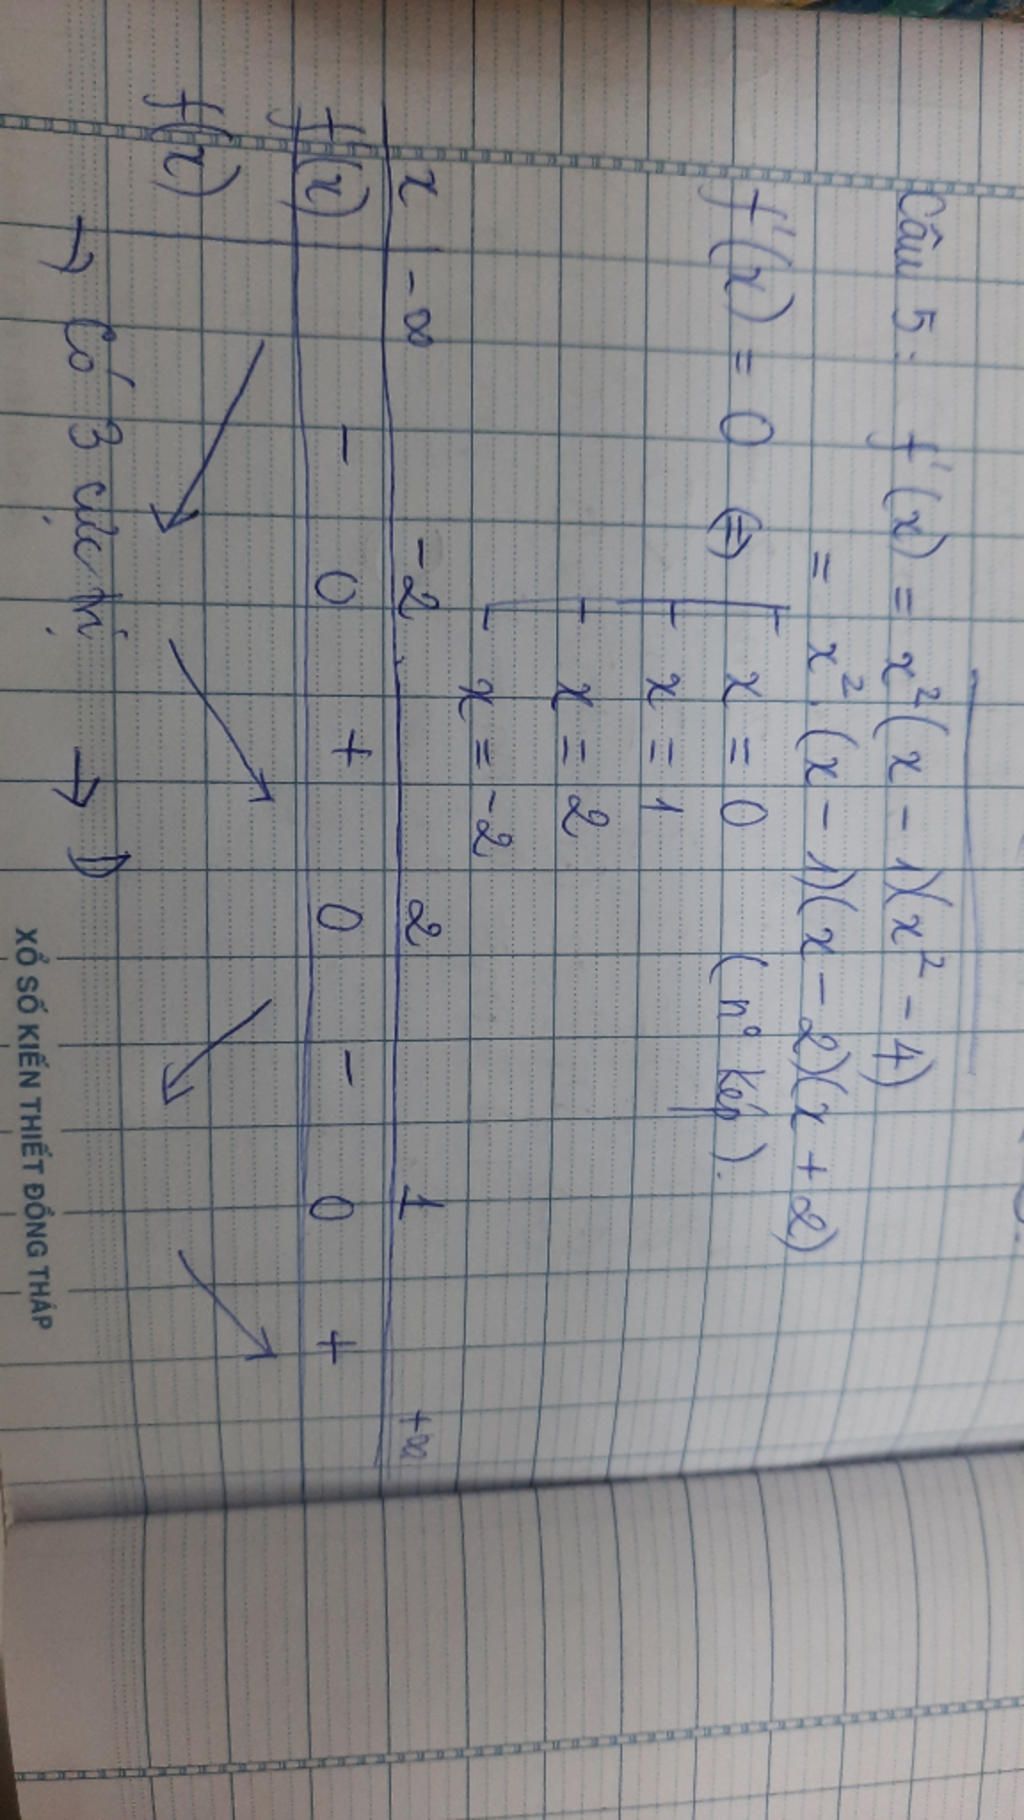 Câu 5: f'(x) = x²(x - 1)(x² - 4)
= x².(x - 1)(x - 2)(x + 2)
f'(x) = 0 (=) x = 0 (n° kép).
x = 1
x = 2
x = -2
x -∞ -2 2 1 +∞
f'(x) - 0 + 0 - 0 +
f(x)
→ Có 3 cực trị → D
XỔ SỐ KIẾN THIẾT ĐỒNG THÁP